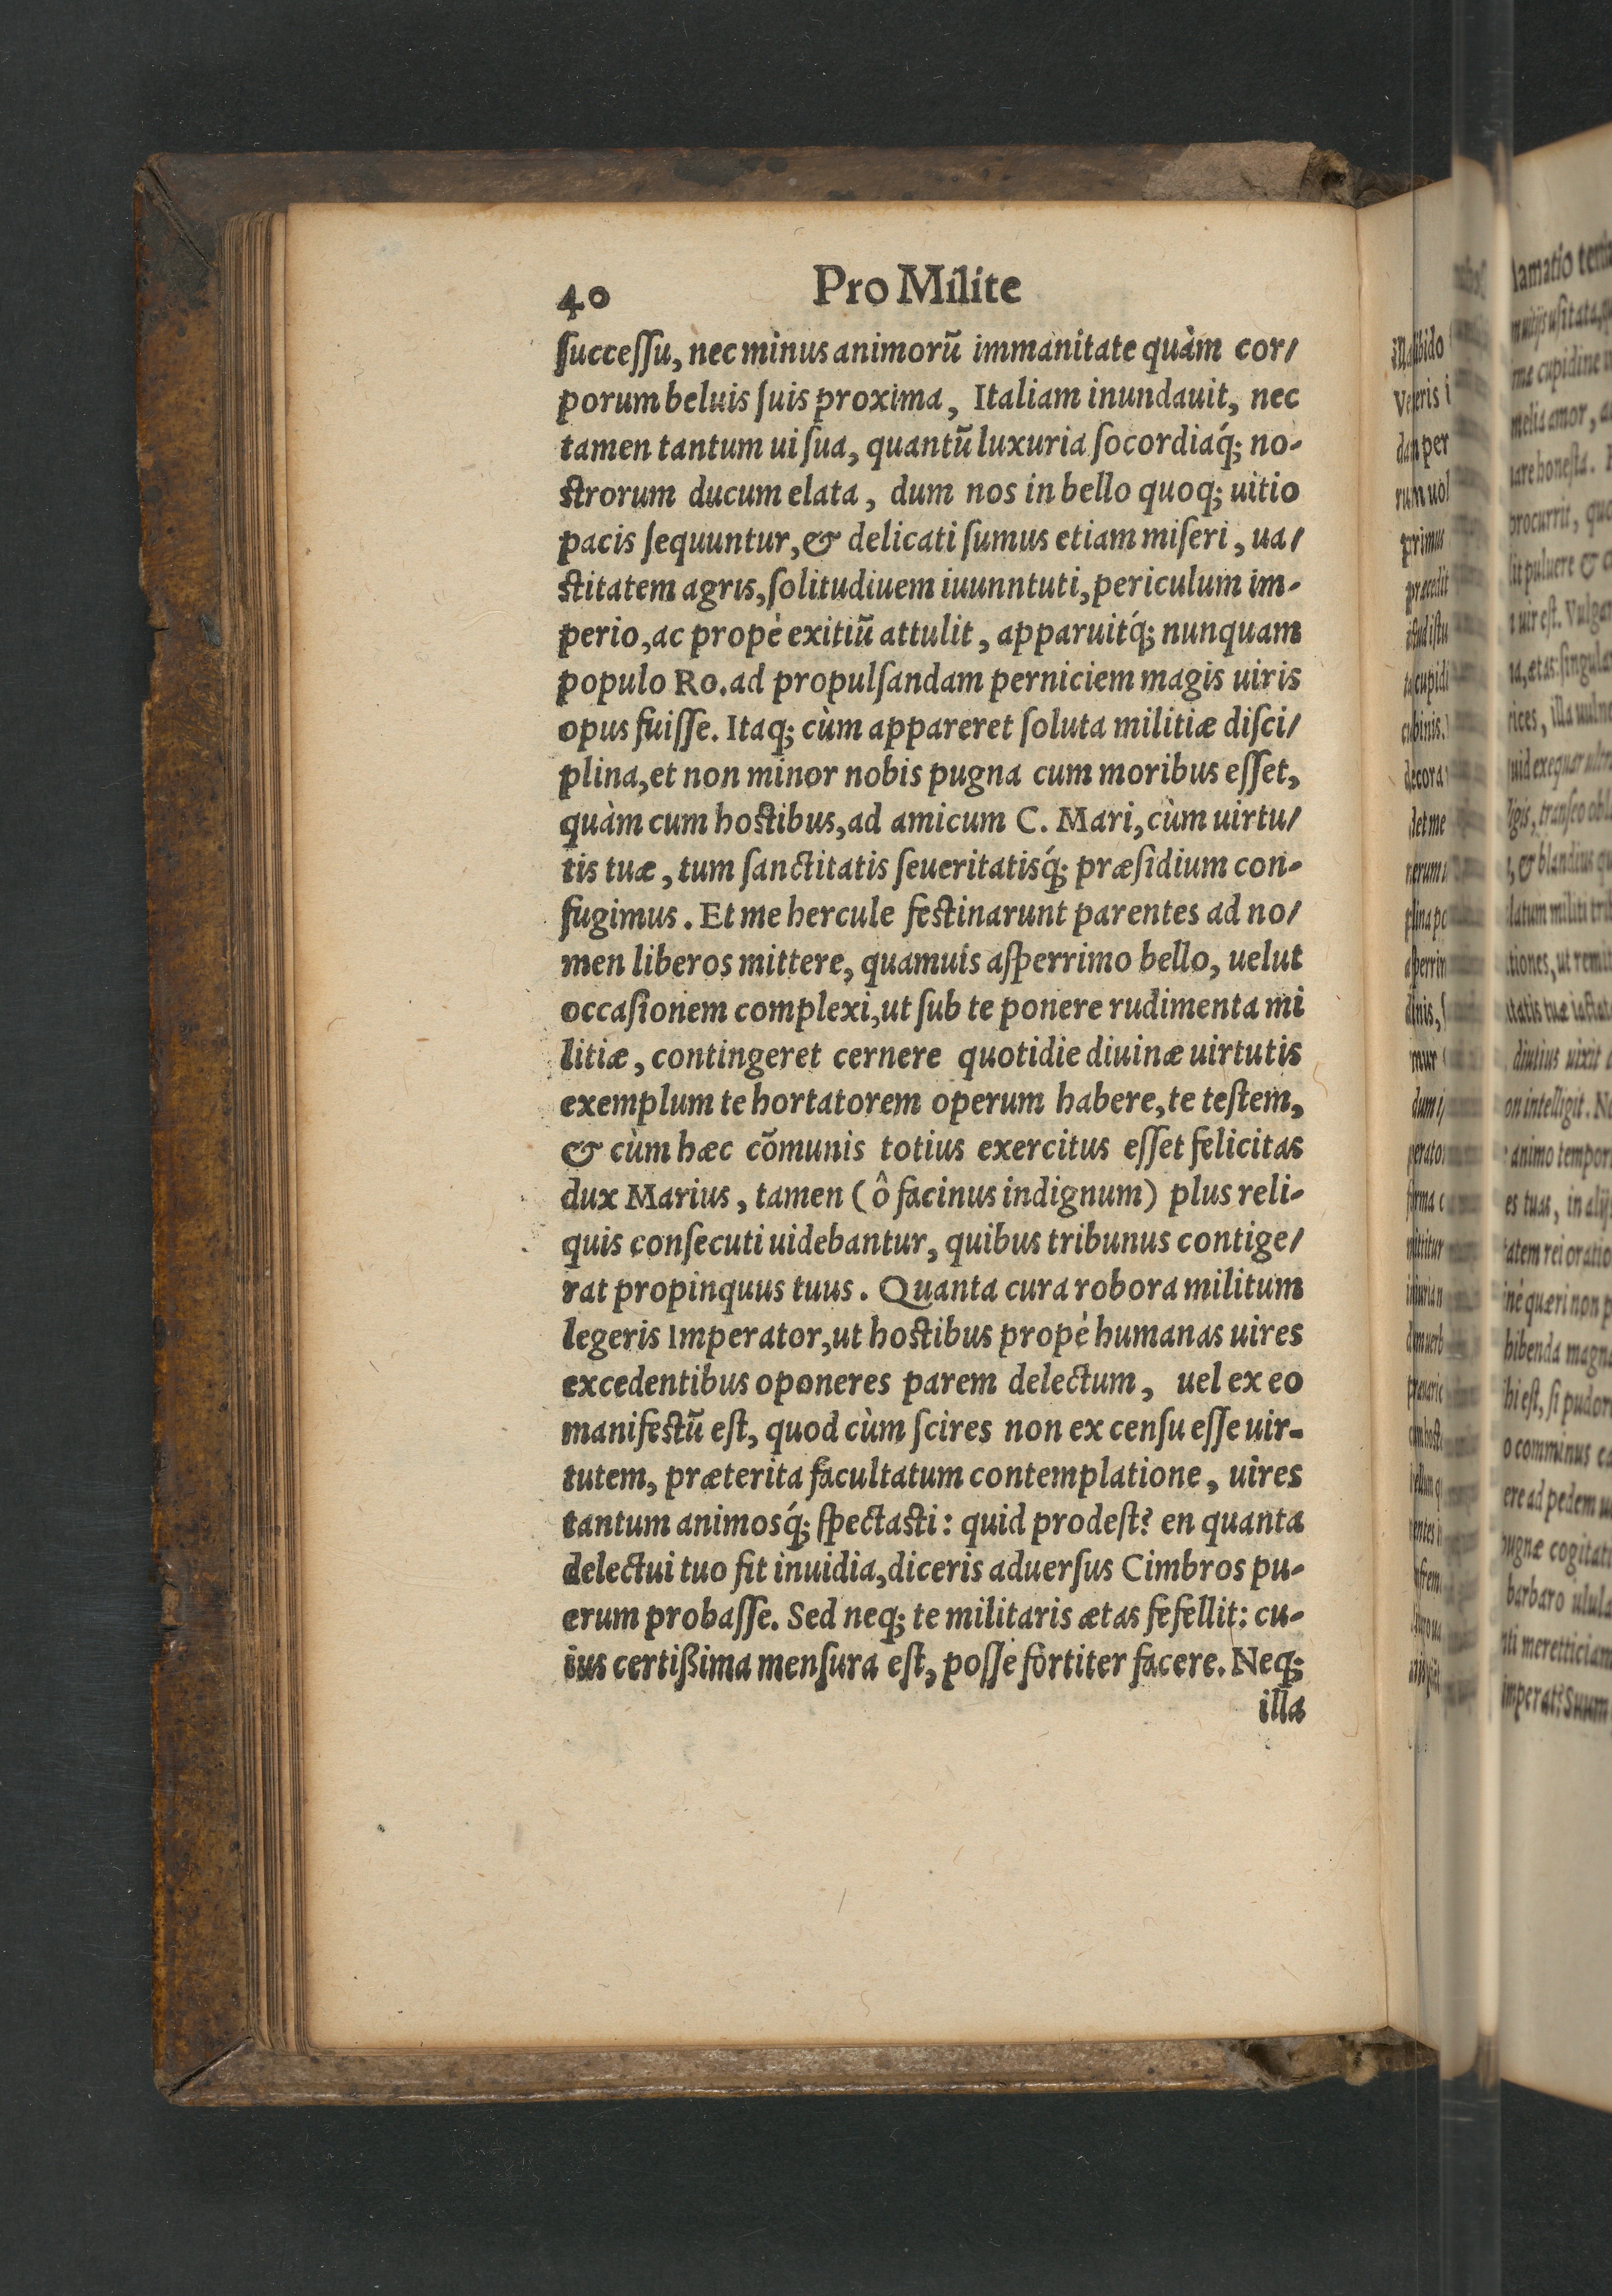 40 Pro Milite
ſucceſſu, nec minus animorũ immanitate quàm cor/
porum beluis ſuis proxima, Italiam inundauit, nec
tamen tantum ui ſua, quantũ luxuria ſocordiaq́; no-
ſtrorum ducum elata, dum nos in bello quoq; uitio
pacis ſequuntur, & delicati ſumus etiam miſeri, ua/
ſtitatem agris, ſolitudiuem iuunntuti, periculum im-
perio, ac propè exitiũ attulit, apparuitq́; nunquam
populo Ro. ad propulſandam perniciem magis uiris
opus fuiſſe. Itaq; cùm appareret ſoluta militiæ diſci/
plina, et non minor nobis pugna cum moribus eſſet,
quàm cum hoſtibus, ad amicum C. Mari, cùm uirtu/
tis tuæ, tum ſanctitatis ſeueritatisq́; præſidium con-
fugimus. Et me hercule feſtinarunt parentes ad no/
men liberos mittere, quamuis aſperrimo bello, uelut
occaſionem complexi, ut ſub te ponere rudimenta mi
litiæ, contingeret cernere quotidie diuinæ uirtutis
exemplum te hortatorem operum habere, te teſtem,
& cùm hæc cõmunis totius exercitus eſſet felicitas
dux Marius, tamen (ô facinus indignum) plus reli-
quis conſecuti uidebantur, quibus tribunus contige/
rat propinquus tuus. Quanta cura robora militum
legeris Imperator, ut hoſtibus propè humanas uires
excedentibus oponeres parem delectum, uel ex eo
manifeſtũ eſt, quod cùm ſcires non ex cenſu eſſe uir-
tutem, præterita facultatum contemplatione, uires
tantum animosq́; ſpectaſti: quid prodeſt? en quanta
delectui tuo fit inuidia, diceris aduerſus Cimbros pu-
erum probaſſe. Sed neq; te militaris ætas fefellit: cu-
ius certißima menſura eſt, poſſe fortiter facere. Neq;
illa